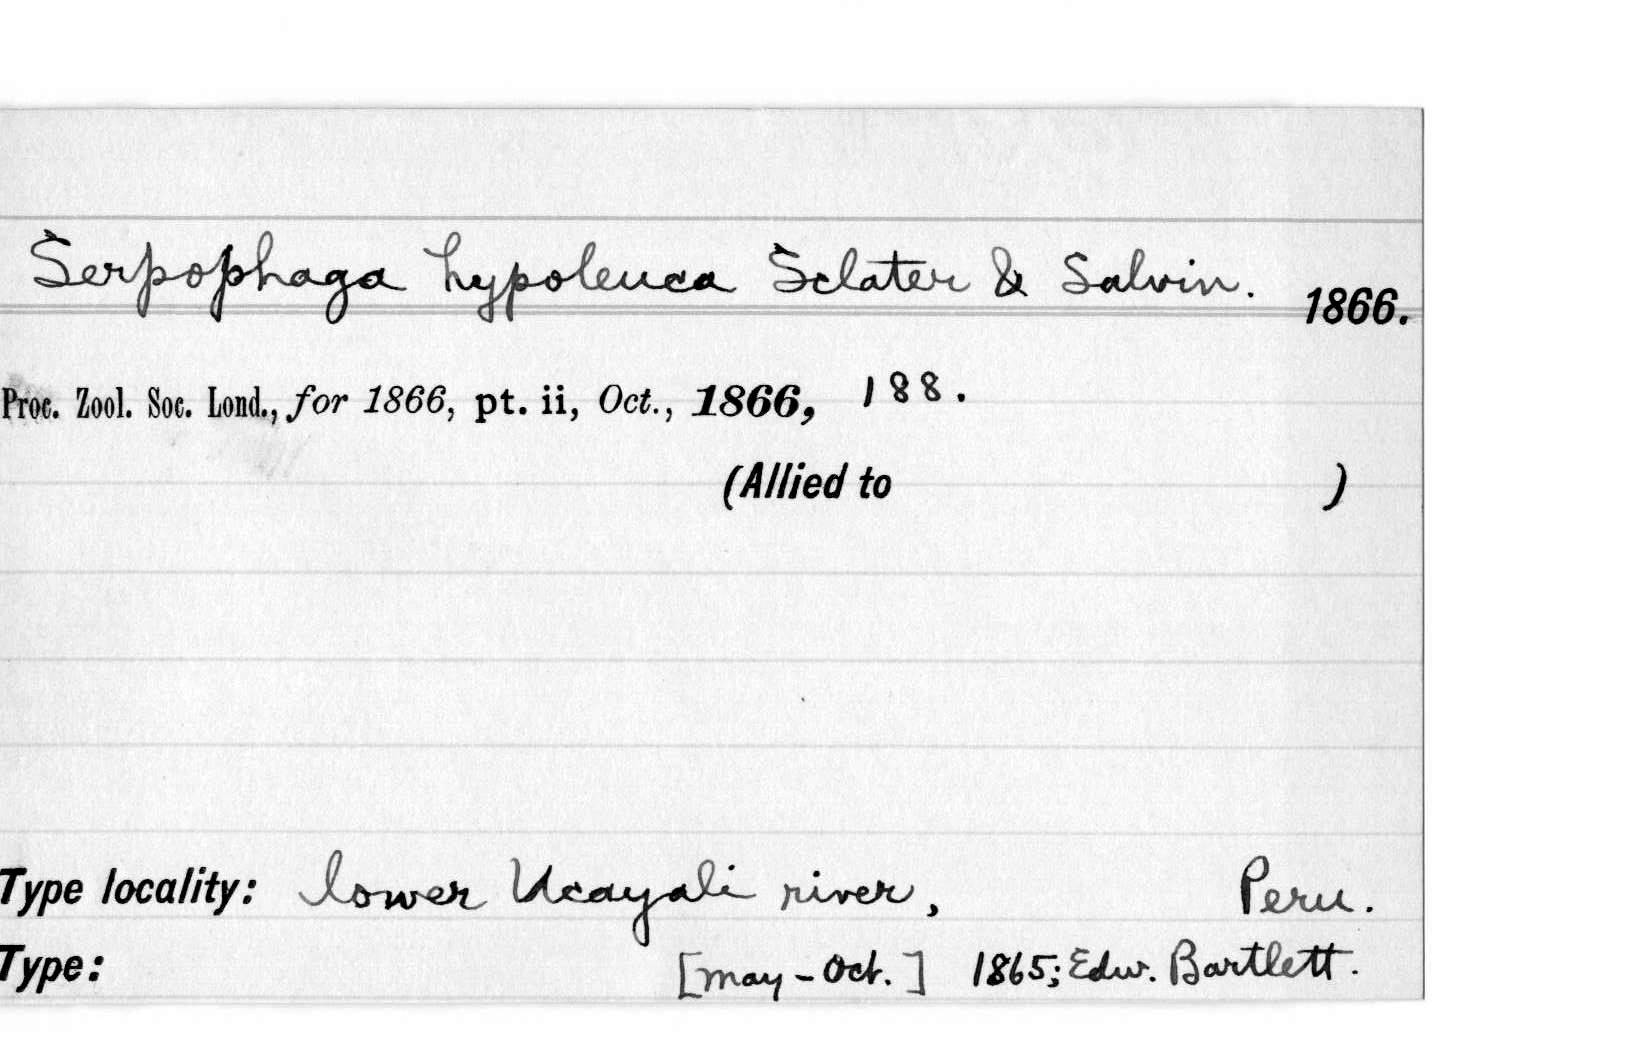 Serpophaga hypoleuca Sclater & Salvin. 1866.
Proc. Zool. Soc. Lond., for 1866, pt. ii, Oct., 1866, 188.
(Allied to )
Type locality: lower Ucayali river, Peru.
Type: [May - Oct.] 1865; Edw. Bartlett.